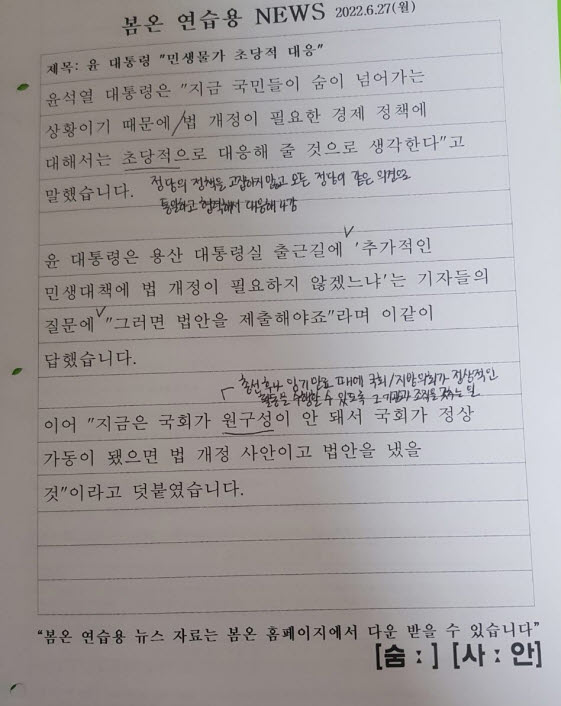 봄온 연습용 NEWS 2022.6.27(월)
제목: 윤 대통령 "민생물가 초당적 대응"
윤석열 대통령은 "지금 국민들이 숨이 넘어가는
상황이기 때문에/법 개정이 필요한 경제 정책에
대해서는 초당적으로 대응해 줄 것으로 생각한다"고
말했습니다. 정당의 정책을 고집하지 않고 모든 정당이 같은 의견으로
통일하고 협력해서 대응해 나감
윤 대통령은 용산 대통령실 출근길에 '추가적인
민생대책에 법 개정이 필요하지 않겠느냐'는 기자들의
질문에 "그러면 법안을 제출해야죠"라며 이같이
답했습니다.
총선 후나 임기만료 때에 국회/지방의회가 정상적인
활동을 수행할 수 있도록 그 기관과 조직을 갖추는 일
이어 "지금은 국회가 원구성이 안 돼서 국회가 정상
가동이 됐으면 법 개정 사안이고 법안을 냈을
것"이라고 덧붙였습니다.
"봄온 연습용 뉴스 자료는 봄온 홈페이지에서 다운 받을 수 있습니다"
[숨:] [사:안]